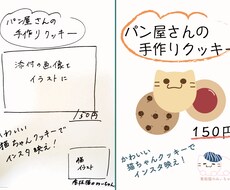 パン屋さんの
手作りクッキー
添付の画像を
イラストに
150円
かわいい
猫ちゃんクッキーで
インスタ映え！
猫
イラスト
パン屋さんの
手作りクッキー
150円
かわいい
猫ちゃんクッキーで
インスタ映え！